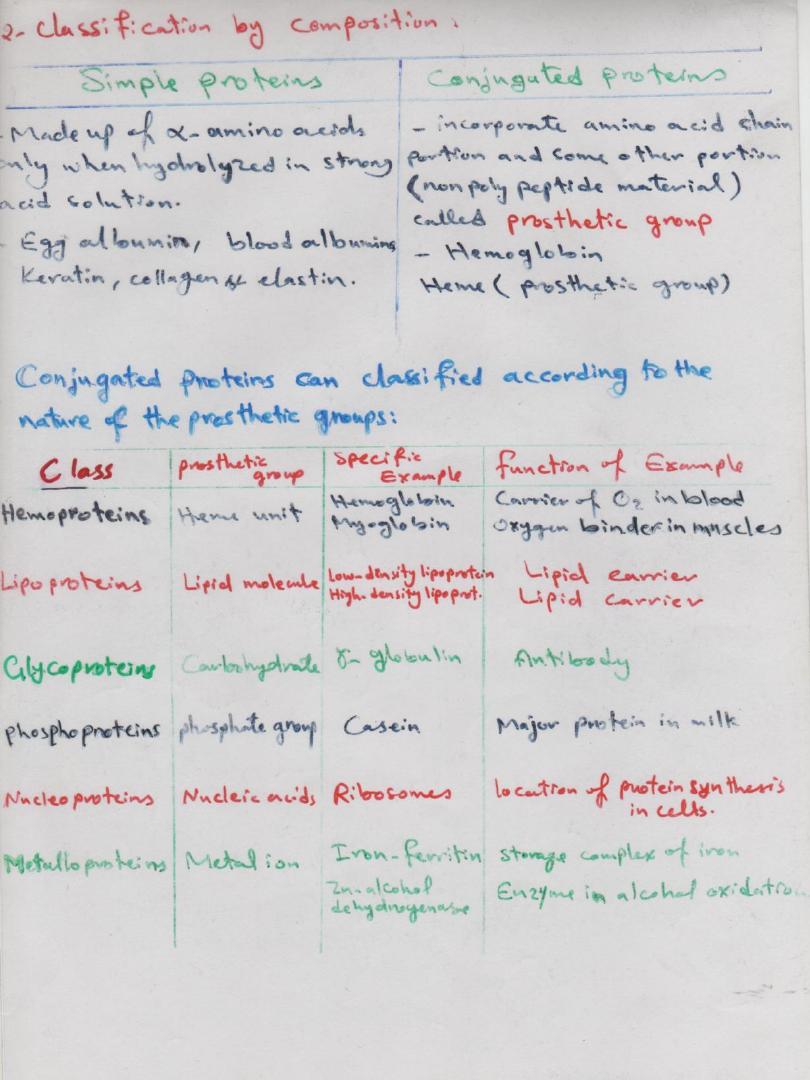 2- Classification by composition.
Simple proteins
- Made up of α-amino acids
only when hydrolyzed in strong
acid solution.
- Egg albumin, blood albumins
Keratin, collagen & elastin.
Conjugated proteins
- incorporate amino acid chain
portion and some other portion
(non poly peptide material)
called prosthetic group
- Hemoglobin
Heme (prosthetic group)
Conjugated proteins can classified according to the
nature of the prosthetic groups:
Class prosthetic group Specific Example function of Example
Hemoproteins Heme unit Hemoglobin Carrier of O₂ in blood
Myoglobin Oxygen binder in muscles
Lipoproteins Lipid molecule Low-density lipoprotein Lipid carrier
High-density lipoprot. Lipid carrier
Glycoproteins Carbohydrate γ- globulin Antibody
phosphoproteins phosphate group Casein Major protein in milk
Nucleoproteins Nucleic acids Ribosomes location of protein synthesis
in cells.
Metalloproteins Metal ion Iron-ferritin storage complex of iron
Zn-alcohol dehydrogenase Enzyme in alcohol oxidation